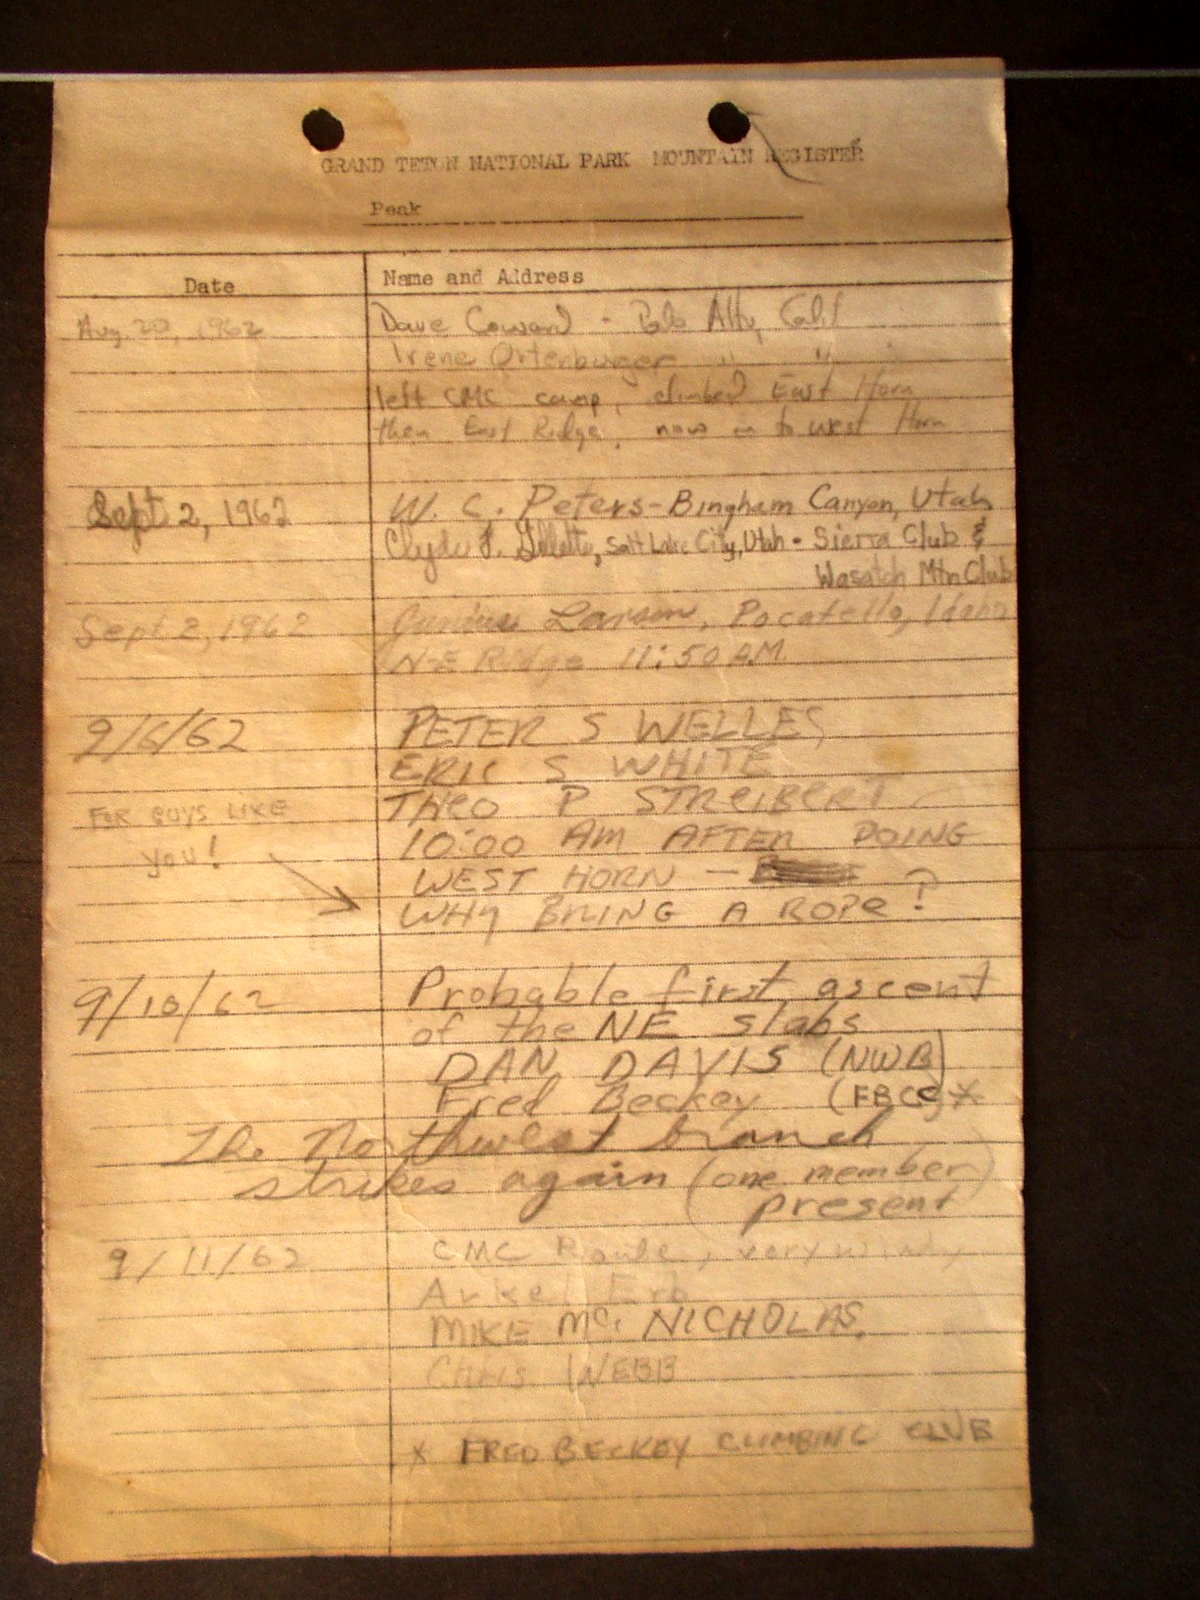 GRAND TETON NATIONAL PARK MOUNTAIN REGISTER
Peak
Date Name and Address
Aug. 20, 1962 Dave Coward - Palo Alto, Calif
Irene Ortenburger " "
left CMC camp, climbed East Horn
then East Ridge, now on to West Horn
Sept. 2, 1962 W. C. Peters - Bingham Canyon, Utah
Clyde J. Gillette, Salt Lake City, Utah - Sierra Club &
Wasatch Mtn Club
Sept 2, 1962 Larson, Pocatello, Idaho
N-E Ridge 11:50 A.M.
9/6/62 PETER S WELLES
ERIC S WHITE
THEO P STREIBERT
FOR GUYS LIKE
10:00 AM AFTER DOING
you!
WEST HORN —
WHY BRING A ROPE?
9/10/62 Probable first ascent
of the NE slabs
DAN DAVIS (NWB)
Fred Beckey (FBCC)*
The Northwest branch
strikes again (one member)
present
9/11/62 CMC Route, very
Arkel Erb
MIKE Mc. NICHOLAS.
Chris WEBB
* FRED BECKEY CLIMBING CLUB